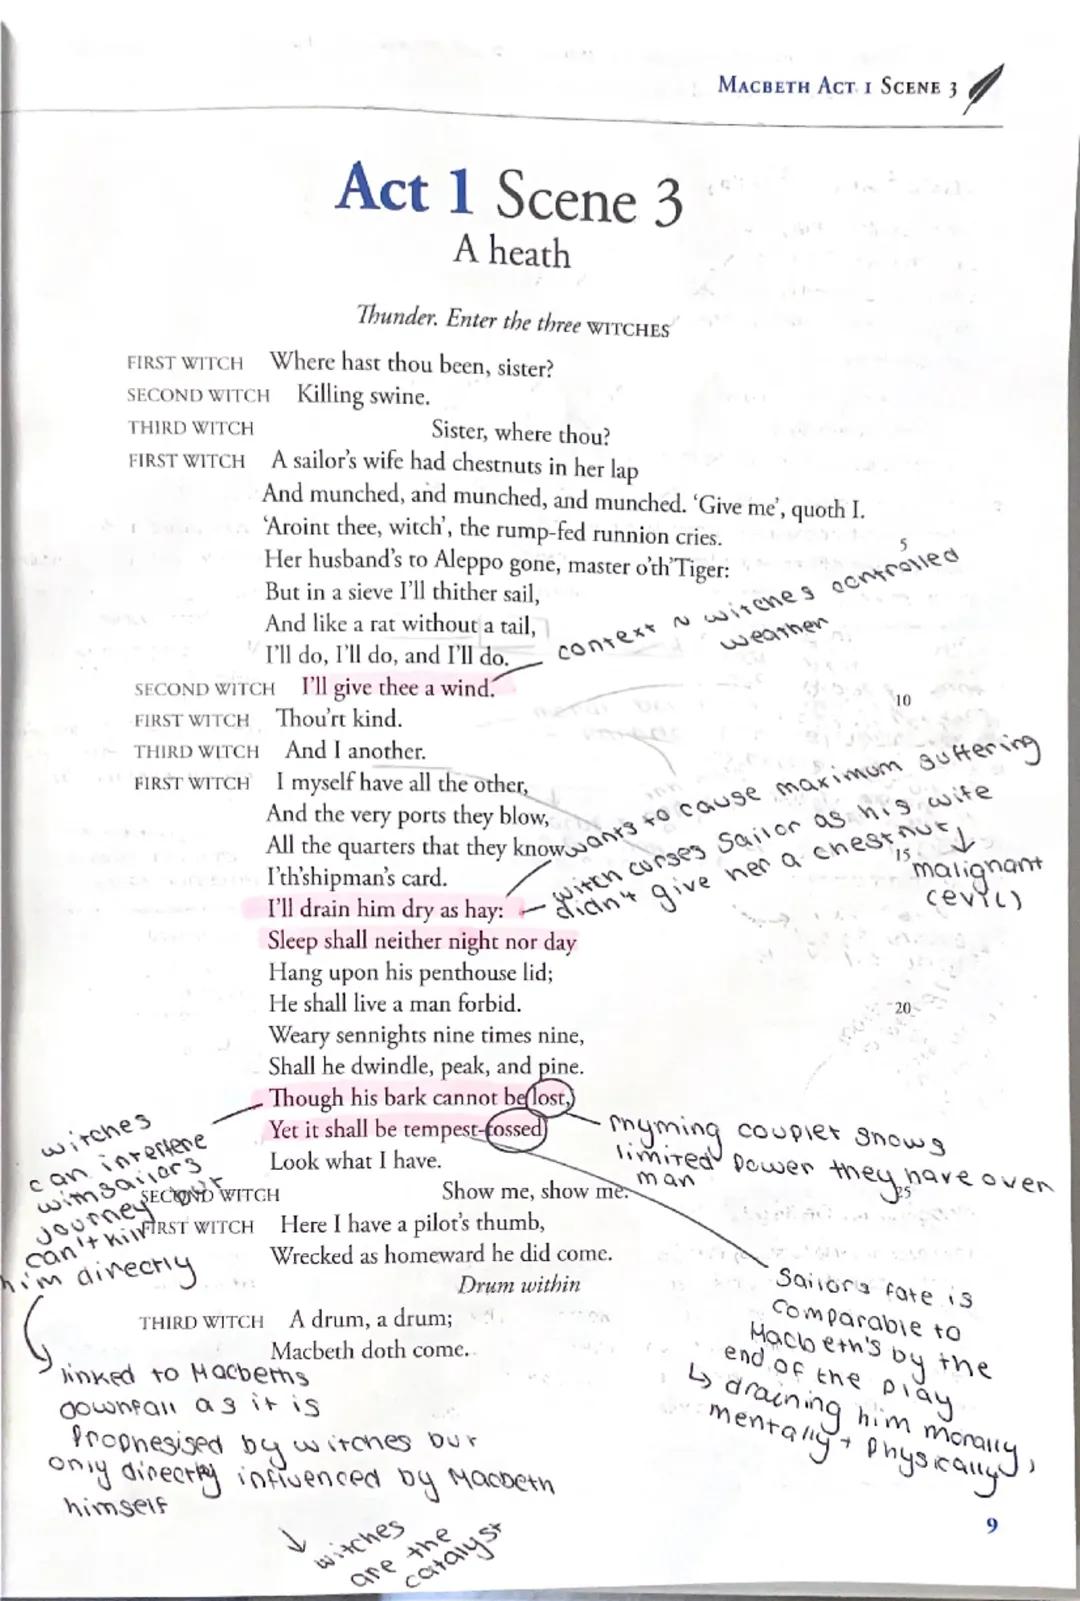 MACBETH ACT 1 SCENE 3
Act 1 Scene 3
A heath
Thunder. Enter the three WITCHES
FIRST WITCH Where hast thou been, sister?
SECOND WITCH Killing swine.
THIRD WITCH Sister, where thou?
FIRST WITCH A sailor's wife had chestnuts in her lap
And munched, and munched, and munched. 'Give me', quoth I.
'Aroint thee, witch', the rump-fed runnion cries.
5
Her husband's to Aleppo gone, master o'th'Tiger:
But in a sieve I'll thither sail,
And like a rat without a tail,
I'll do, I'll do, and I'll do.
context ~ witches controlled
weather
SECOND WITCH I'll give thee a wind.
10
FIRST WITCH Thou'rt kind.
THIRD WITCH And I another.
FIRST WITCH I myself have all the other,
And the very ports they blow,
All the quarters that they know
I'th'shipman's card.
15
wants to cause maximum suffering
witch curses sailor as his wife
didn't give her a chestnut
↓
malignant
(evil)
I'll drain him dry as hay:
Sleep shall neither night nor day
Hang upon his penthouse lid;
He shall live a man forbid.
20
Weary sennights nine times nine,
Shall he dwindle, peak, and pine.
Though his bark cannot be lost,
Yet it shall be tempest-tossed.
Look what I have.
rhyming couplet shows
limited power they have over
man
witches
can interfere
with sailors
journey but
can't kill
him directly
SECOND WITCH Show me, show me.
25
FIRST WITCH Here I have a pilot's thumb,
Wrecked as homeward he did come.
Drum within
THIRD WITCH A drum, a drum;
Macbeth doth come.
Sailors fate is
comparable to
Macbeth's by the
end of the play
↳ draining him morally,
mentally + physically
linked to Macbeths
downfall as it is
prophesised by witches but
only directly influenced by Macbeth
himself
↓ witches
are the
catalyst
9